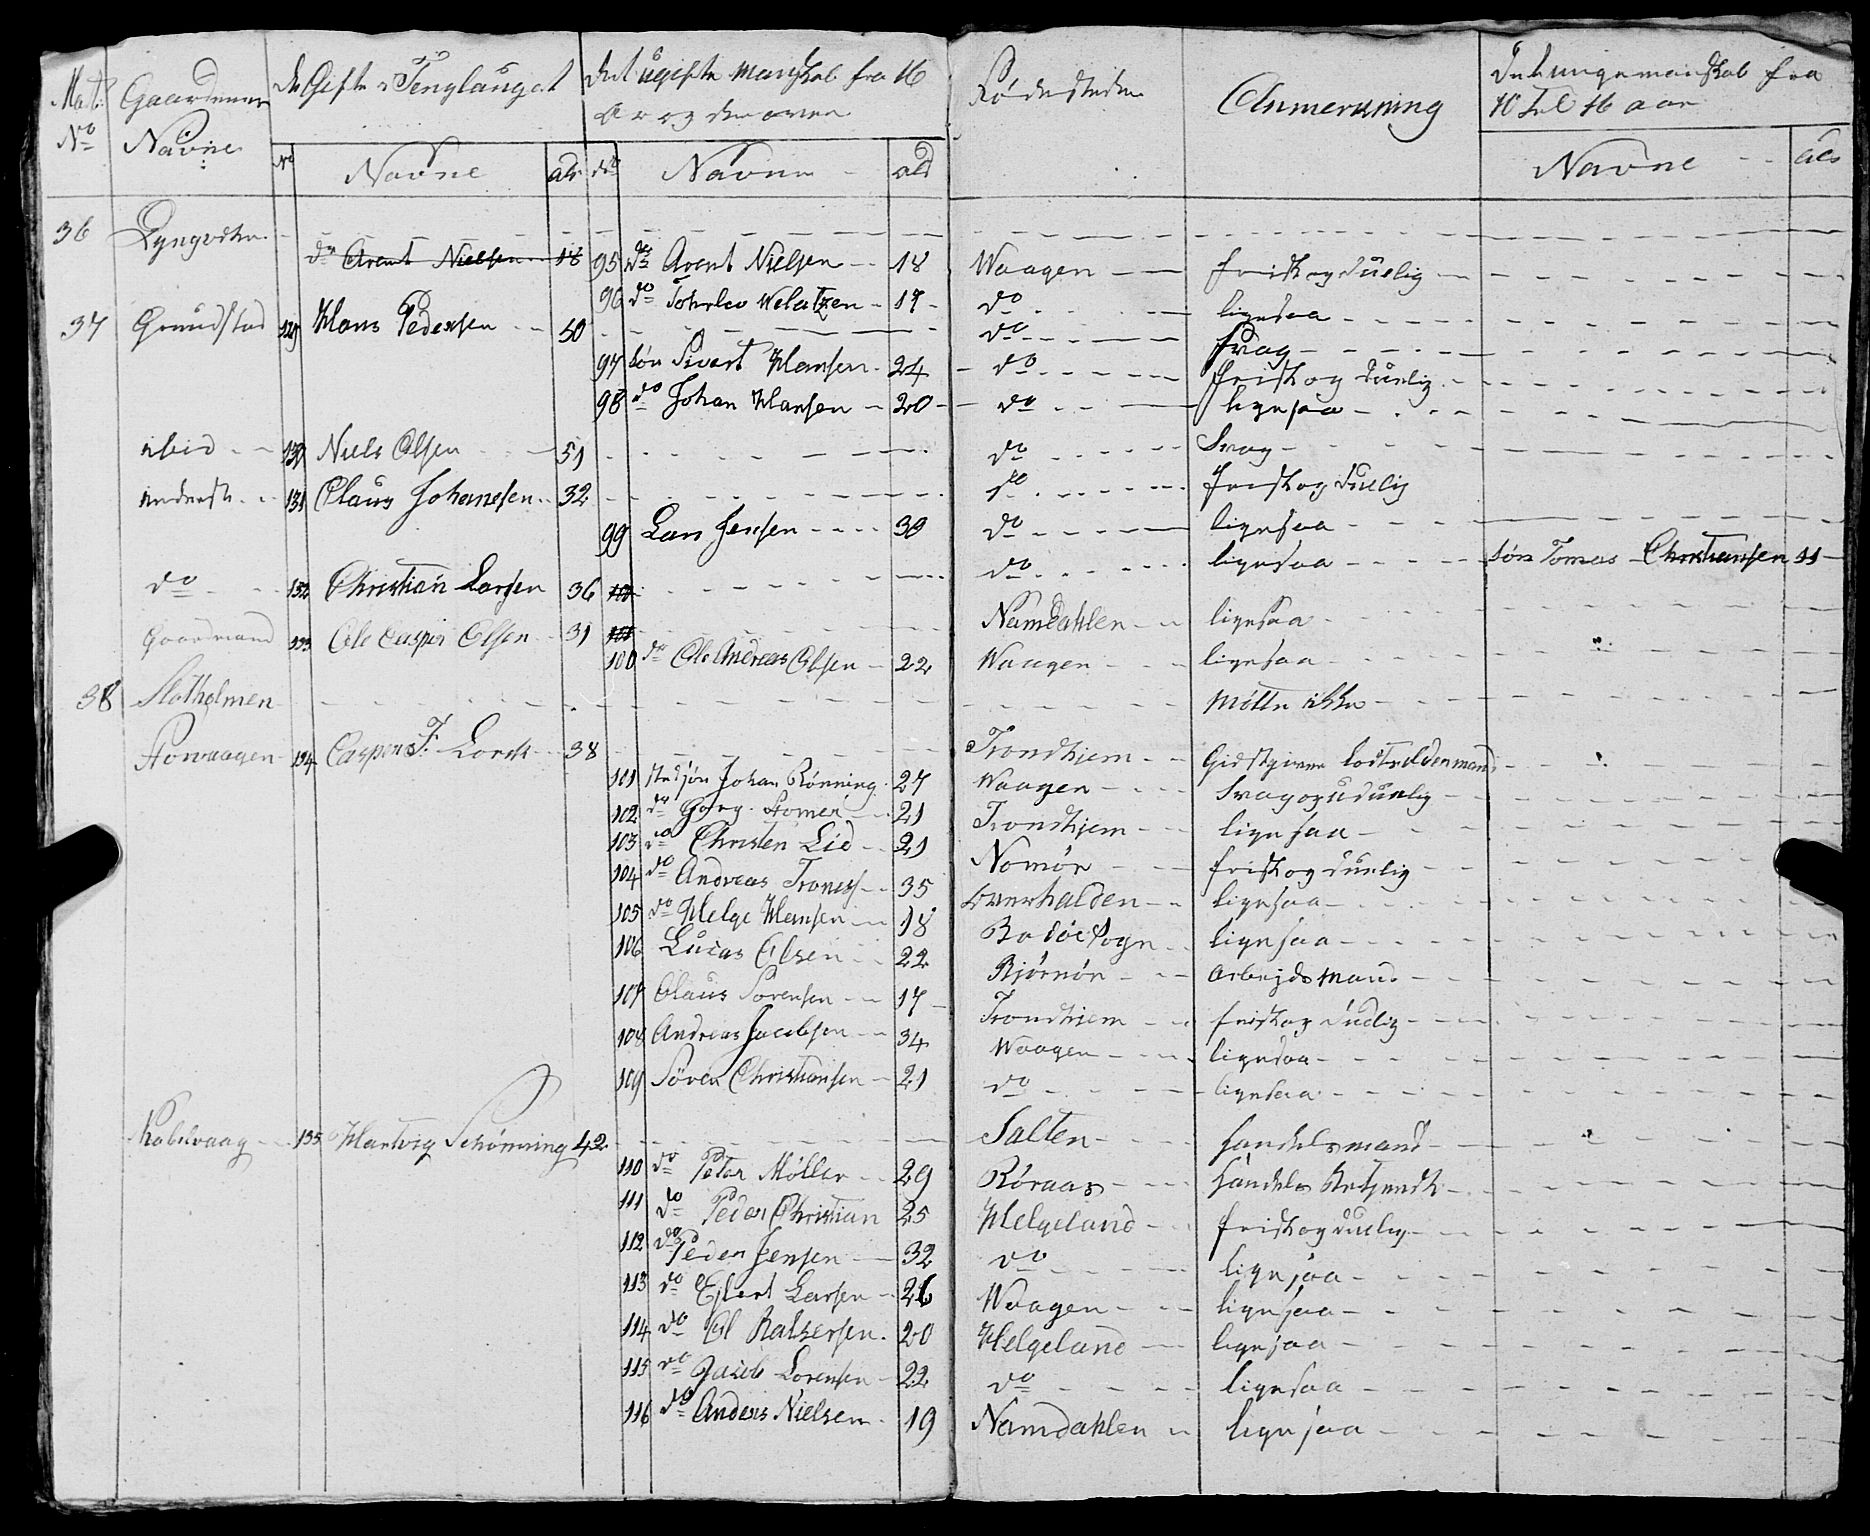 Mat: No Gaardenes Navne De Gifte i Tenglauget Det ugifte Manskab fra 16 Ar og derover Fødestedene Anmerkning Det unge manskab fra 10 til 16 aar
No Navne ald No Navne ald Navne ald
36 Lyngvær
do Arent Nielsen 18 95 do Arent Nielsen 18 Waagen frisk og Duelig
96 do Tohrlev Welatzen 17 do ligesaa
37 Grundstad 129 Hans Pedersen 50 do Svag
97 Søn Sivert Hansen 24 do frisk og Duelig
98 do Johan Hansen 20 do ligesaa
ibid 130 Niels Olsen 51 do Svag
inderst 131 Claus Johansen 32 do frisk og Duelig
99 Lars Jensen 30 do ligesaa
do 132 Christian Larsen 36 100 do ligesaa Søn Tomas Christiansen 11
Gaardmand 133 Ole Casper Olsen 31 101 Namdahlen ligesaa
100 do Ole Andreas Olsen 22 Waagen ligesaa
38 Slotholmen møtte ikke
Storvaagen 134 Caspen F. Lorch 38 Trondhiem Gidstgiver
101 Johan Rønning 27 Waagen Svag og uduelig
102 do Georg Stomer 21 Trondhiem ligesaa
103 do Christen Lid 21 Nomør frisk og Duelig
104 do Andreas Troness 35 Overhalden ligesaa
105 do Helge Hansen 18 Bodøe Sogn ligesaa
106 Lucas Olsen 22 Bjørnør Arbejdsmand
107 Olaus Sorensen 17 Trondhiem frisk og Duelig
108 Andreas Jacobsen 34 Waagen ligesaa
109 Søren Christiansen 21 do ligesaa
Kabelvaag 135 Hartvig Schønning 42 Salten handelsmand
110 do Peter Møller 29 Røraas handels Betjendt
111 do Peder Christian 25 Helgeland frisk og Duelig
112 do Peder Jensen 32 do ligesaa
113 do Ejlert Larsen 26 Waagen ligesaa
114 do Ol Balsersen 20 Helgeland ligesaa
115 do Jacob Lorensen 22 do ligesaa
116 do Anders Nielsen 19 Namdahlen ligesaa